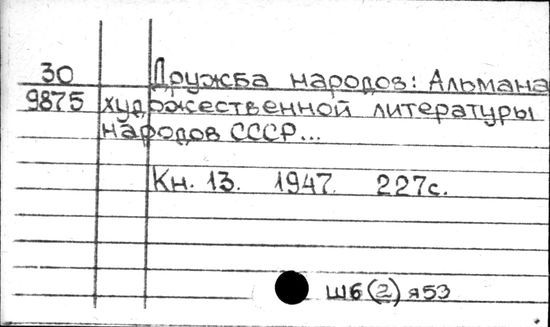 30 Дружба народов: Альмана
9875 художественной литературы
народов СССР...
Кн. 13. 1947. 227с.
Ш6(2)я53